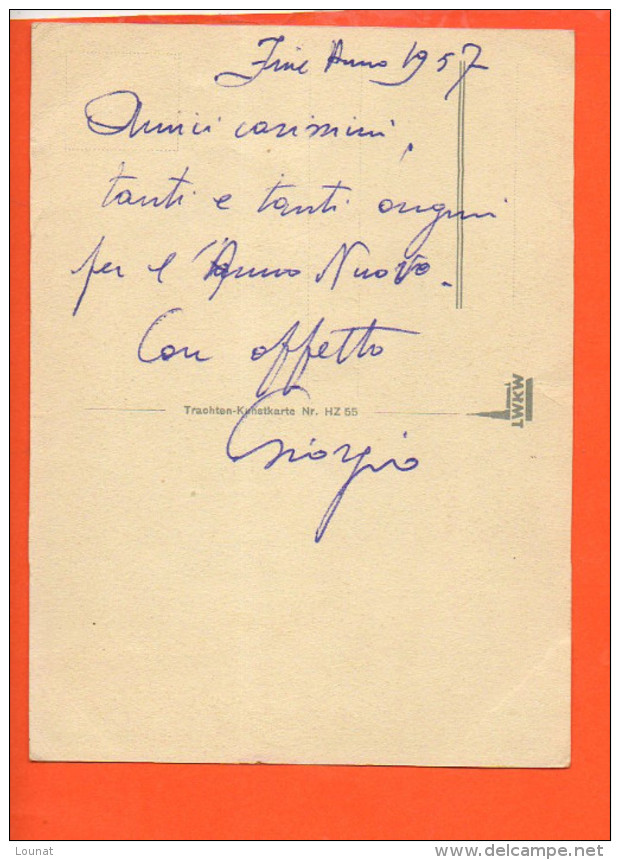 Fine Anno 1957
Amici carissimi,
tanti e tanti auguri
per l'Anno Nuovo.
Con affetto
Trachten-Kunstkarte Nr. HZ 55
LWKW
Giorgio
Lounat
www.delcampe.net